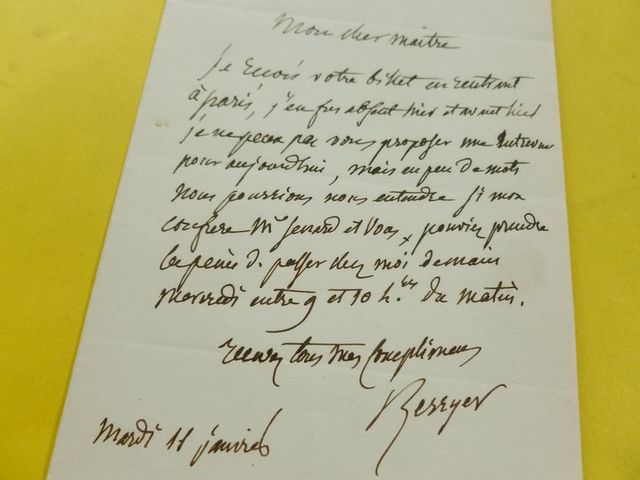 Mon cher maitre
Je reçois votre billet en rentrant
à paris, j'en fus absent hier et avant hier
je ne peux pas vous proposer une entrevue
pour aujourdhui, mais en peu de mots
nous pourrions nous entendre si mon
confrere Mr Senard et Vous pouviez prendre
la peine de passer chez moi demain
mercredi entre 9 et 10 h. du matin.
recevez tous mes compliments
Berryer
Mardi 11 janvier